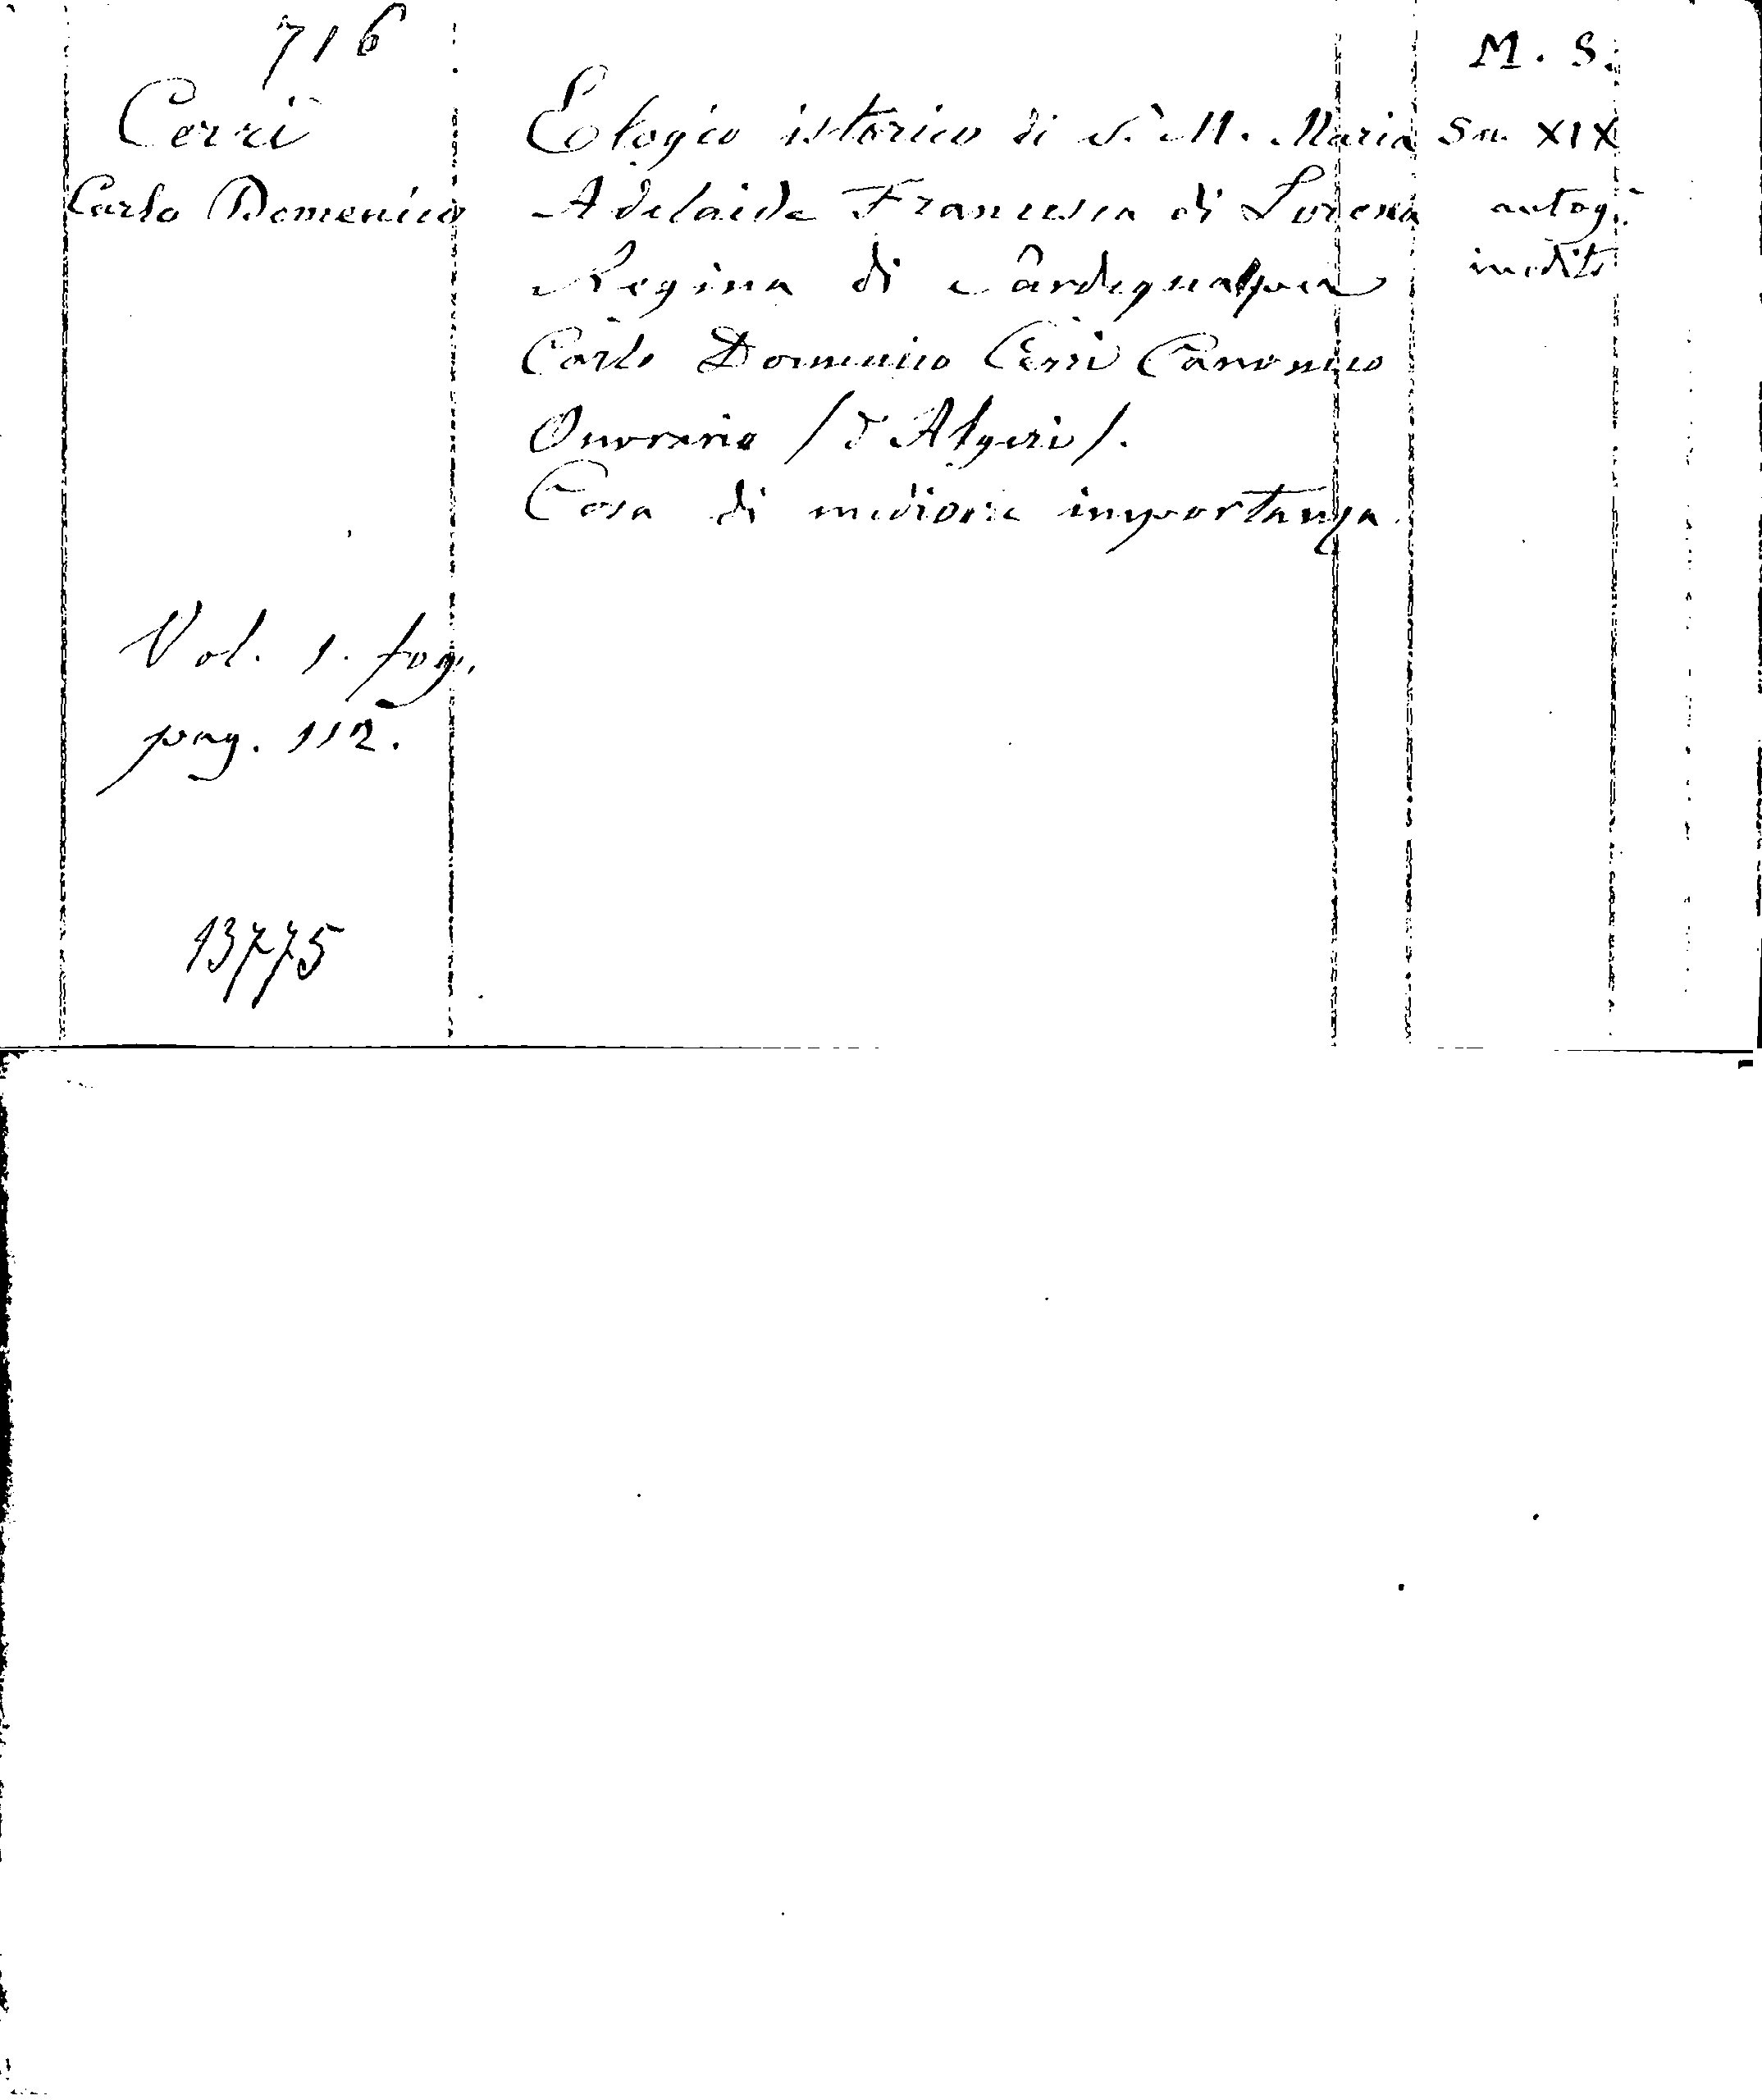 716
Cerri
Carlo Domenico
Elogio istorico di S. M. Maria
Adelaide Francesca di Lorena
Regina di Sardegna per
Carlo Domenico Cerri Canonico
Onorario (d'Algeri).
Cosa di mediocre importanza.
M. S.
Sec. XIX
autog.
inedito
Vol. 1. fog.
pag. 112.
13775